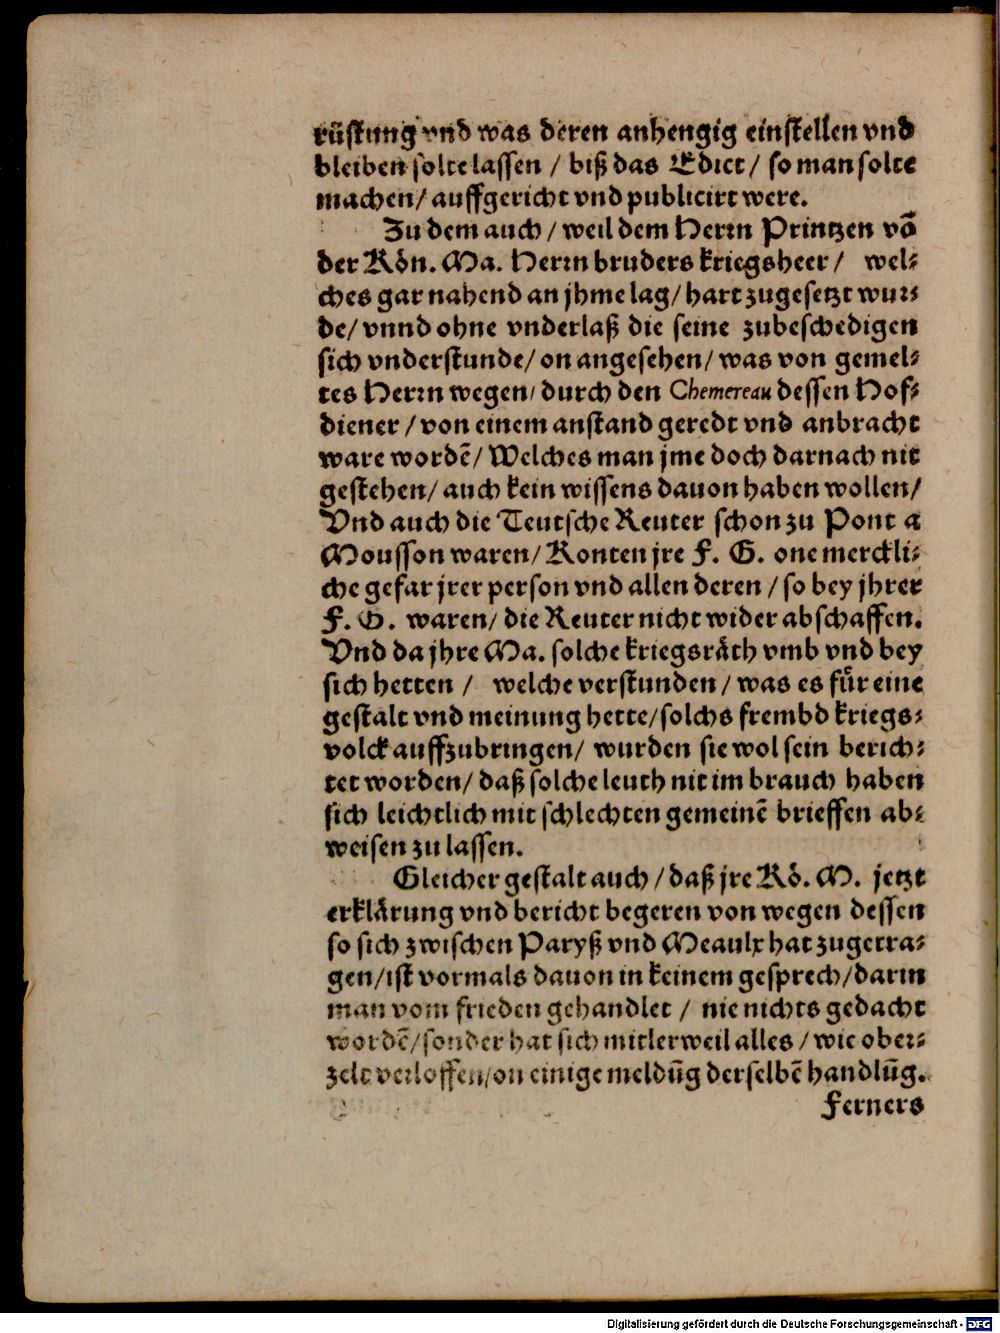 rüstung vnd was deren anhengig einstellen vnd
bleiben solte lassen / biß das Edict / so man solte
machen / auffgericht vnd publicirt were.
Zu dem auch / weil dem Herrn Printzen võ
der Kön. Ma. Herrn bruders kriegsheer / wel⸗
ches gar nahend an jhme lag / hart zugesetzt wur⸗
de / vnnd ohne vnderlaß die seine zubeschedigen
sich vnderstunde / on angesehen / was von gemel⸗
tes Herrn wegen / durch den Chemereau dessen Hof⸗
diener / von einem anstand geredt vnd anbracht
ware wordẽ / Welches man jme doch darnach nit
gestehen / auch kein wissens dauon haben wollen /
Vnd auch die Teutsche Reuter schon zu Pont a
Mousson waren / Konten jre F. G. one merckli⸗
che gefar jrer person vnd allen deren / so bey jhrer
F. G. waren / die Reuter nicht wider abschaffen.
Vnd da jhre Ma. solche kriegsräth vmb vnd bey
sich hetten / welche verstunden / was es für eine
gestalt vnd meinung hette / solchs frembd kriegs⸗
volck auffzubringen / wurden sie wol sein berich⸗
tet worden / daß solche leuth nit im brauch haben
sich leichtlich mit schlechten gemeinẽ brieffen ab⸗
weisen zu lassen.
Gleicher gestalt auch / daß jre Kö. M. jetzt
erklärung vnd bericht begeren von wegen dessen
so sich zwischen Paryß vnd Meaulx hat zugetra⸗
gen / ist vormals dauon in keinem gesprech / darin
man vom frieden gehandlet / nie nichts gedacht
wordẽ / sonder hat sich mitlerweil alles / wie ober⸗
zelt verloffen / on einige meldũg derselbẽ handlũg.
Ferners
Digitalisierung gefördert durch die Deutsche Forschungsgemeinschaft - DFG